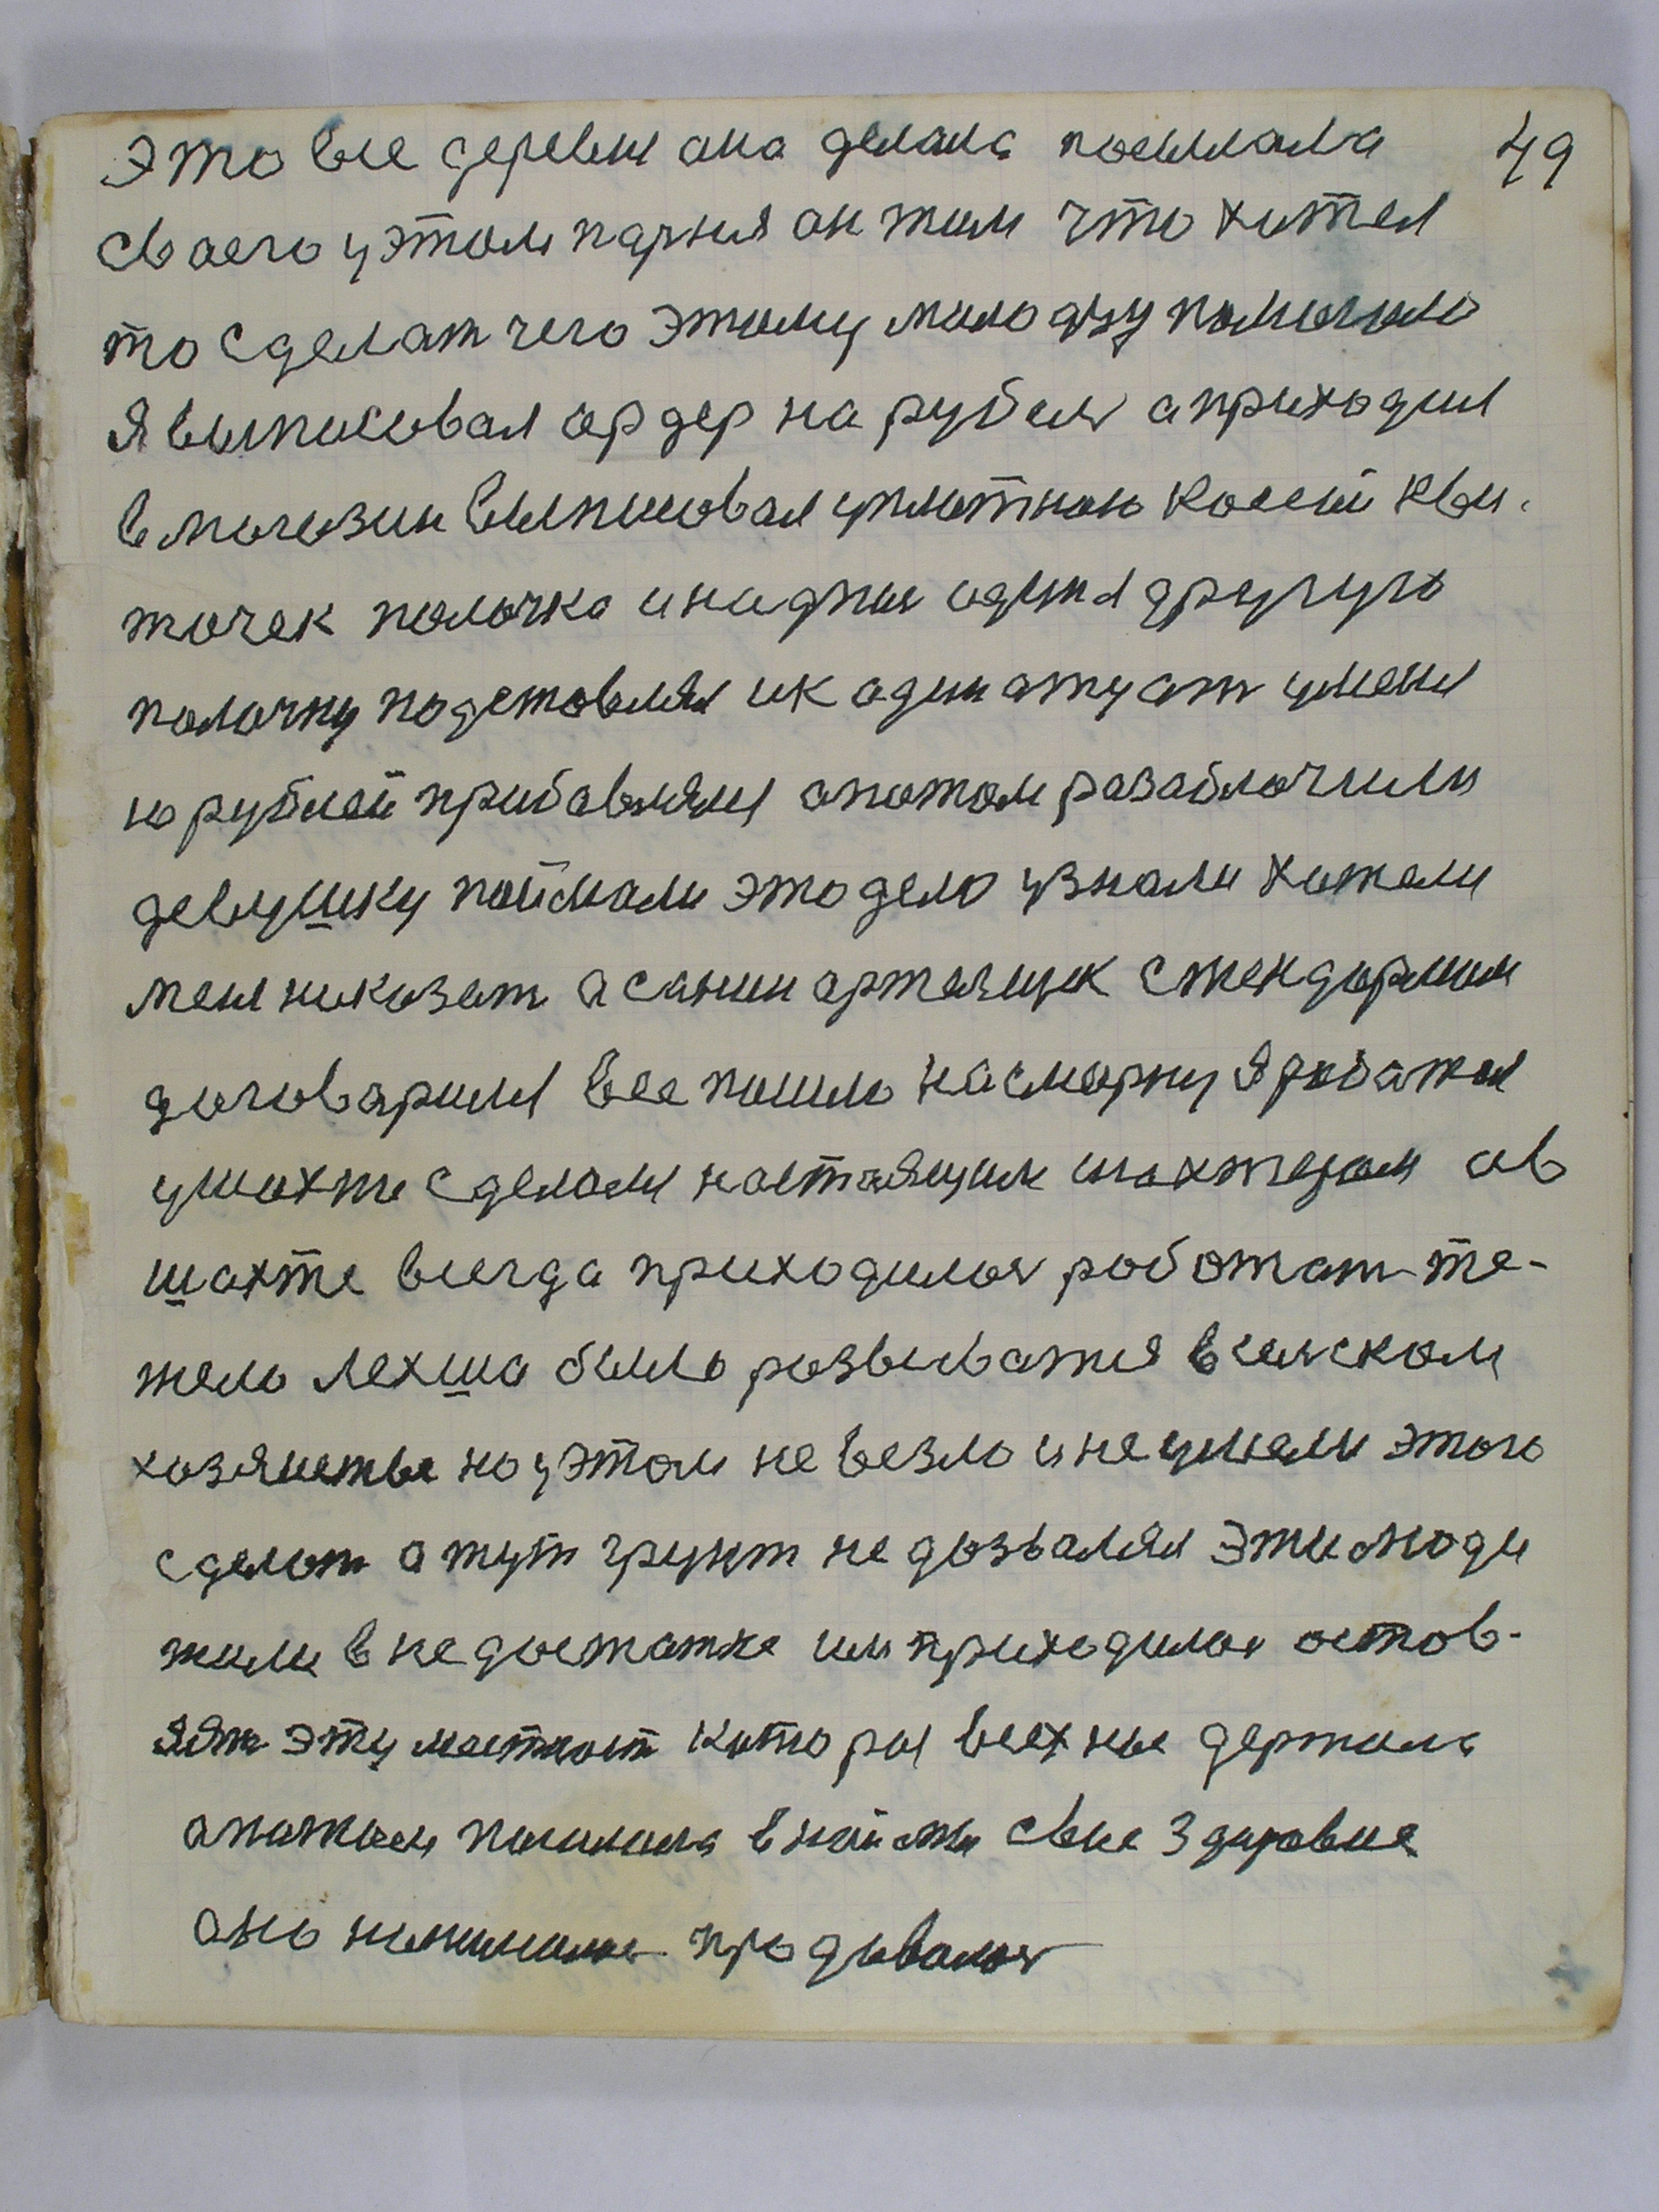 это все деревни она делала посылала 49
сваего у этом парния он там что хител
то сделат чего этому малодцу памигило
я выписовал ордер на рубель а приходил
в могозин выписовал уплотною косей кви-
точек палочка и на дния один я другую
палочку подстовлял и к одинатцат у меня
ю рублей прибавлял а потом разаблочили
девушку поймали это дело узнали хители
меня никозат а санин артельщик с жендормам
договариля все пошло насморку я роботал
у шахте сделаля настаящим шахтером а в
шахте всегда приходилося роботат тя-
жело лехша было розвиватия в сельском
хозяистве но у этом не везло и не умели этого
сделот а тут грунт не дозвалял эти люди
жили в недостатке им приходилося остов-
лят эту местност котора всех не держала
а потом пошила в найми свае здаровие
ано продовалося